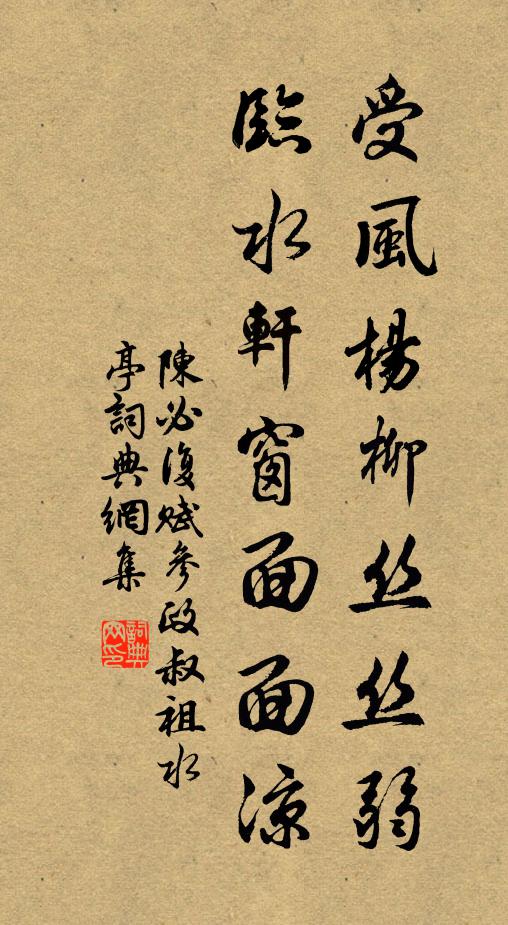 受風楊柳丝丝弱
臨水軒窗面面凉
陳必復赋參政叔祖水
亭詞典網集
詞典
网印